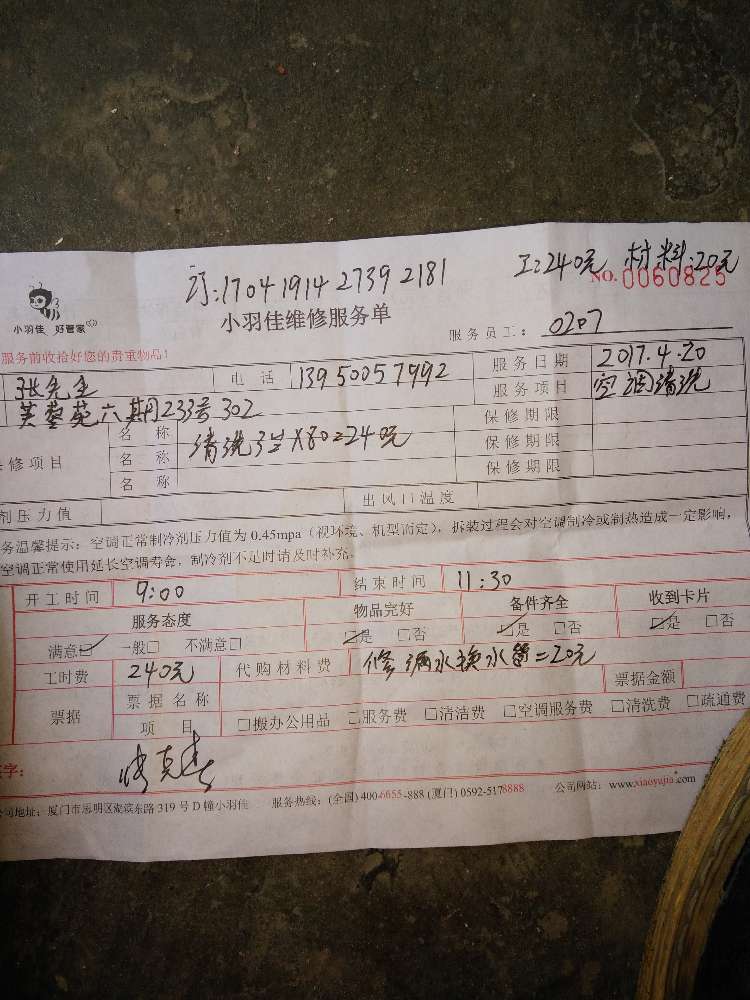 订:1704 1914 2739 2181 工:240元 材料:20元
NO. 0060825
小羽佳 好管家
小羽佳维修服务单
服务员工: 0207
服务前收拾好您的贵重物品!
张先生 电话 13950057992 服务日期 2017.4.20
芙蓉苑六期233号302 服务项目 空调清洗
修项目 名称 清洗3台X80=240元 保修期限
名称 保修期限
名称 保修期限
剂压力值 出风口温度
务温馨提示:空调正常制冷剂压力值为0.45mpa(视环境、机型而定),拆装过程会对空调制冷或制热造成一定影响,
空调正常使用延长空调寿命,制冷剂不足时请及时补充。
开工时间 9:00 结束时间 11:30
服务态度 物品完好 备件齐全 收到卡片
满意☑ 一般□ 不满意□ ☑是 □否 ☑是 □否 ☑是 □否
工时费 240元 代购材料费 修漏水换水管=20元
票据 票据名称 票据金额
项目 □搬办公用品 □服务费 □清洁费 □空调服务费 □清洗费 □疏通费
字:
公司地址:厦门市思明区莲滨东路319号D幢小羽佳 服务热线:(全国)400-6655-888 (厦门) 0592-5178888 公司网站:www.xiaoyujia.com